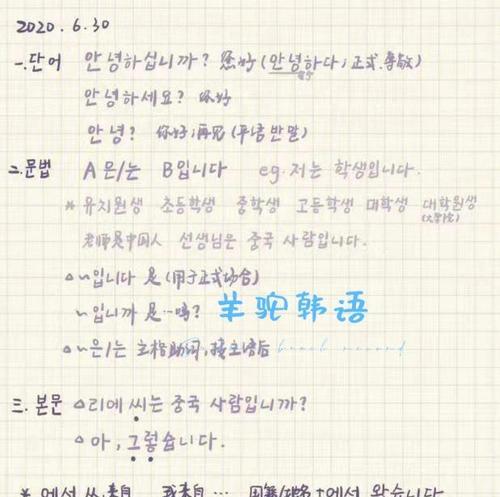 2020.6.30
一.단어 안녕하십니까? 您好(안녕하다; 正式.尊敬)
안녕하세요? 你好
안녕? 你好;再见(平语반말)
二.문법 A은/는 B입니다 eg.저는 학생입니다.
* 유치원생 초등학생 중학생 고등학생 대학생 대학원생
老师是中国人 선생님은 중국 사람입니다.
△~입니다 是(用于正式场合)
~입니까 是…吗?
羊驼韩语
△~은/는 主格助词,接主语后
三.본문 △리메 씨는 중국 사람입니까?
△아, 그렇습니다.
* 에서 来自 我来自… 国籍/地名+에서 왔습니다